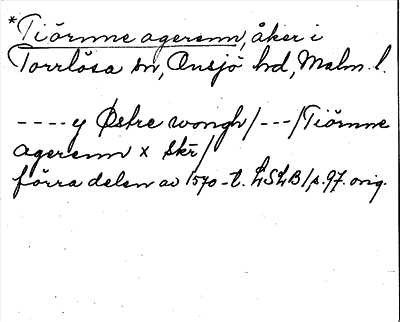 *Tiörnne agerenn, åker i
Torrlösa sn, Onsjö hd, Malm. l.
----y Østre wongh/---/Tiörnne
agerenn x skr/
förra delen av 1570-t. LSLB/p.97. orig.